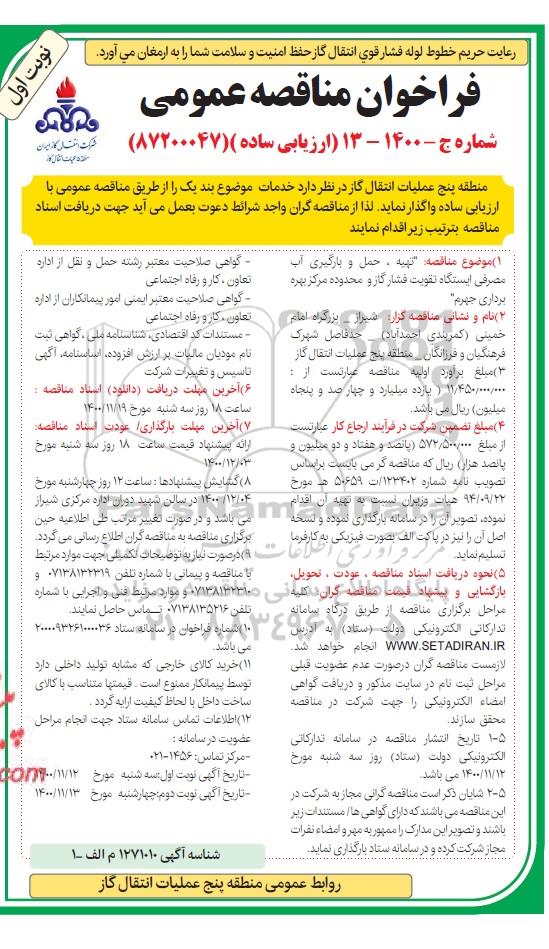 رعایت حریم خطوط لوله فشار قوی انتقال گاز حفظ امنیت و سلامت شما را به ارمغان می آورد.
نوبت اول
فراخوان مناقصه عمومی
شرکت انتقال گاز ایران
منطقه ۵ عملیات انتقال گاز
شماره ج – ۱۴۰۰ – ۱۳ (ارزیابی ساده )(۸۷۲۰۰۰۴۷)
منطقه پنج عملیات انتقال گاز در نظر دارد خدمات موضوع بند یک را از طریق مناقصه عمومی با
ارزیابی ساده واگذار نماید. لذا از مناقصه گران واجد شرائط دعوت بعمل می آید جهت دریافت اسناد
مناقصه بترتیب زیر اقدام نمایند
۱)موضوع مناقصه: "تهیه ، حمل و بارگیری آب
مصرفی ایستگاه تقویت فشار گاز و محدوده مرکز بهره
برداری جهرم"
۲)نام و نشانی مناقصه گزار: شیراز – بزرگراه امام
خمینی (کمربندی احمدآباد) – حدفاصل شهرک
فرهنگیان و فرزانگان – منطقه پنج عملیات انتقال گاز
۳)مبلغ برآورد اولیه مناقصه عبارتست از :
۱۱/۴۵۰/۰۰۰/۰۰۰ ( یازده میلیارد و چهار صد و پنجاه
میلیون) ریال می باشد.
۴)مبلغ تضمین شرکت در فرآیند ارجاع کار عبارتست
از مبلغ ۵۷۲/۵۰۰/۰۰۰ (پانصد و هفتاد و دو میلیون و
پانصد هزار) ریال که مناقصه گر می بایست براساس
تصویب نامه شماره ۱۲۳۴۰۲/ت ۵۰۶۵۹ هـ مورخ
۹۴/۰۹/۲۲ هیات وزیران نسبت به تهیه آن اقدام
نموده، تصویر آن را در سامانه بارگذاری نموده و نسخه
اصل آن را نیز در پاکت الف بصورت فیزیکی به کارفرما
تسلیم نماید.
۵)نحوه دریافت اسناد مناقصه ، عودت ، تحویل،
بازگشایی و پیشنهاد قیمت مناقصه گران: کلیه
مراحل برگزاری مناقصه از طریق درگاه سامانه
تدارکاتی الکترونیکی دولت (ستاد) به آدرس
WWW.SETADIRAN.IR انجام خواهد شد.
لازمست مناقصه گران درصورت عدم عضویت قبلی
مراحل ثبت نام در سایت مذکور و دریافت گواهی
امضاء الکترونیکی را جهت شرکت در مناقصه
محقق سازند.
۱–۵ تاریخ انتشار مناقصه در سامانه تدارکاتی
الکترونیکی دولت (ستاد) روز سه شنبه مورخ
۱۴۰۰/۱۱/۱۲ می باشد.
۲–۵ شایان ذکر است مناقصه گرانی مجاز به شرکت در
این مناقصه می باشند که دارای گواهی ها / مستندات زیر
باشند و تصویر این مدارک را ممهور به مهر و امضاء نفرات
مجاز شرکت کرده و در سامانه ستاد بارگذاری نماید.
– گواهی صلاحیت معتبر رشته حمل و نقل از اداره
تعاون ، کار و رفاه اجتماعی
– گواهی صلاحیت معتبر ایمنی امور پیمانکاران از اداره
تعاون ، کار و رفاه اجتماعی
– مستندات کد اقتصادی، شناسنامه ملی ، گواهی ثبت
نام مودیان مالیات بر ارزش افزوده، اساسنامه، آگهی
تاسیس و تغییرات شرکت
۶)آخرین مهلت دریافت (دانلود) اسناد مناقصه :
ساعت ۱۸ روز سه شنبه مورخ ۱۴۰۰/۱۱/۱۹
۷)آخرین مهلت بارگذاری/ عودت اسناد مناقصه:
ارائه پیشنهاد قیمت ساعت ۱۸ روز سه شنبه مورخ
۱۴۰۰/۱۲/۰۳
۸)گشایش پیشنهادها : ساعت ۱۲ روز چهارشنبه مورخ
۱۴۰۰/۱۲/۰۴ در سالن شهید دوران اداره مرکزی شیراز
می باشد و در صورت تغییر مراتب طی اطلاعیه حین
برگزاری مناقصه به مناقصه گران اطلاع رسانی می گردد.
۹)درصورت نیاز به توضیحات تکمیلی جهت موارد مرتبط
با مناقصه و پیمانی با شماره تلفن ۰۷۱۳۸۱۳۲۳۱۹ و
۰۷۱۳۸۱۳۲۳۱۰ و موارد مرتبط فنی و اجرایی با شماره
تلفن ۰۷۱۳۸۱۳۵۲۱۶ تماس حاصل نمایند.
۱۰)شماره فراخوان در سامانه ستاد ۲۰۰۰۰۹۳۲۶۱۰۰۰۰۳۶
می باشد.
۱۱)خرید کالای خارجی که مشابه تولید داخلی دارد
توسط پیمانکار ممنوع است . قیمتها متناسب با کالای
ساخت داخل با لحاظ کیفیت ارایه گردد .
۱۲)اطلاعات تماس سامانه ستاد جهت انجام مراحل
عضویت در سامانه :
–مرکز تماس: ۱۴۵۶–۰۲۱
–تاریخ آگهی نوبت اول:سه شنبه مورخ ۱۴۰۰/۱۱/۱۲
–تاریخ آگهی نوبت دوم:چهارشنبه مورخ ۱۴۰۰/۱۱/۱۳
شناسه آگهی ۱۲۷۱۰۱۰ م الف –۱
روابط عمومی منطقه پنج عملیات انتقال گاز